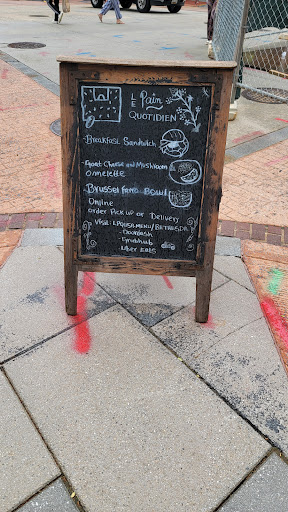 LE Pain
QUOTIDIEN
Breakfast Sandwich
Goat Cheese and Mushroom
Omelette
Brussel Farro Bowl
Online
order Pick up or Delivery
Visit: LPQUSA.MENU/BETHESDA
Doordash
Grubhub
Uber Eats